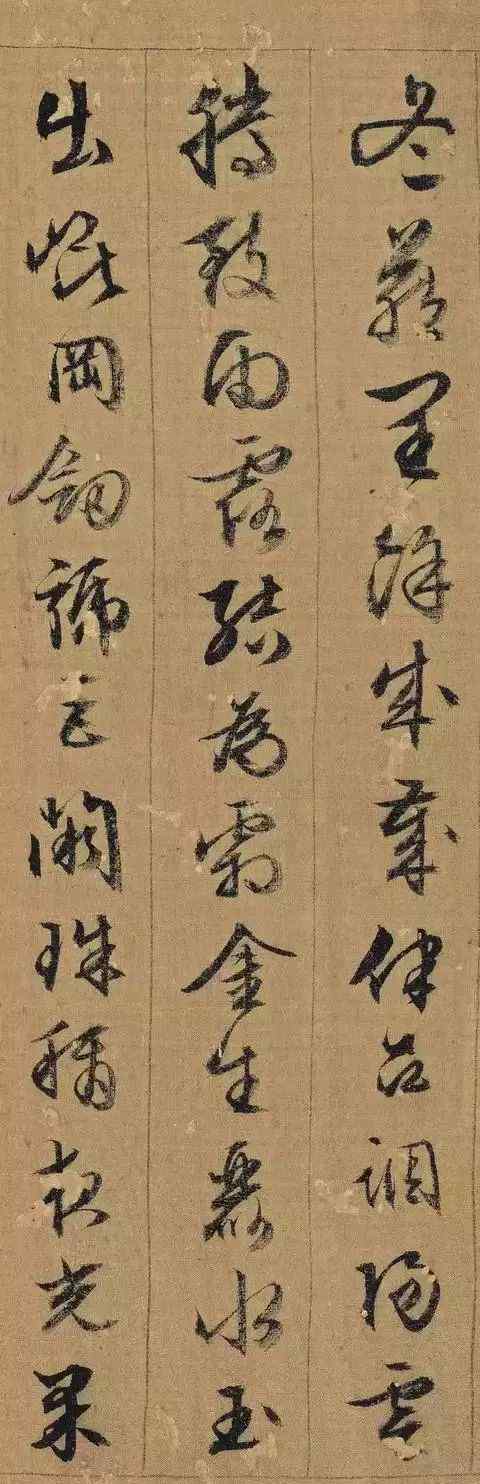 冬藏閏餘成歲律召調陽雲
騰致雨露結為霜金生麗水玉
出崑岡劍號巨闕珠稱夜光果